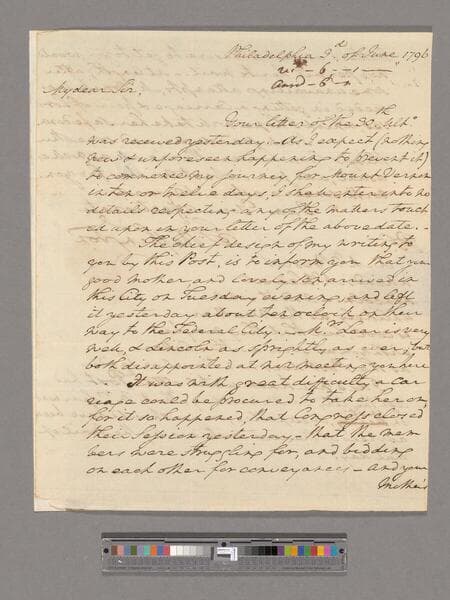 Philadelphia 3d of June 1796
rec'd – 6 –
answd – 6 –
My dear Sir,
Your letter of the 30th Ult°
was received yesterday. – As I expect (nothing
new & unforeseen happening to prevent it)
to commence my journey for Mount Vernon
in ten or twelve days, I shall enter into no
details respecting any of the matters touch
ed upon in your letter of the above date. –
The chief design of my writing to
you by this Post, is to inform you that your
good Mother and lovely Son arrived in
this City on Tuesday evening, and left
it yesterday about ten oclock on their
way to the Federal City. – Mrs Lear is very
well, & Lincoln as sprightly as ever; but
both disappointed at not meeting you here
. . It was with great difficulty a Car
riage could be procured to take her on,
for it so happened, that Congress closed
their Session yesterday – that the mem
bers were struggling for, and bidding
on each other for conveyances – and your
Mother's